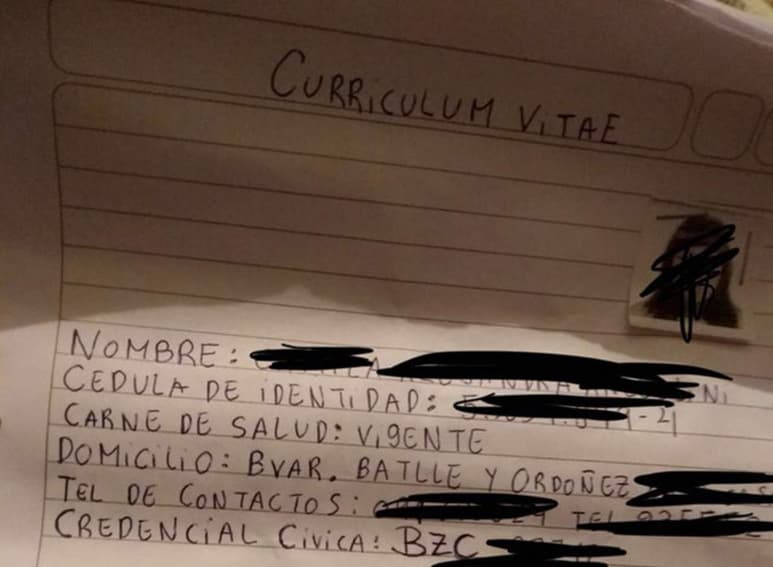 CURRiCULUM ViTAE
NOMBRE:
CEDULA DE iDENTiDAD:
CARNE DE SALUD: ViGENTE
DOMiCiLiO: BVAR. BATLLE Y ORDOÑEZ
TEL DE CONTACTOS: TEL
CREDENCiAL CiViCA: BZC